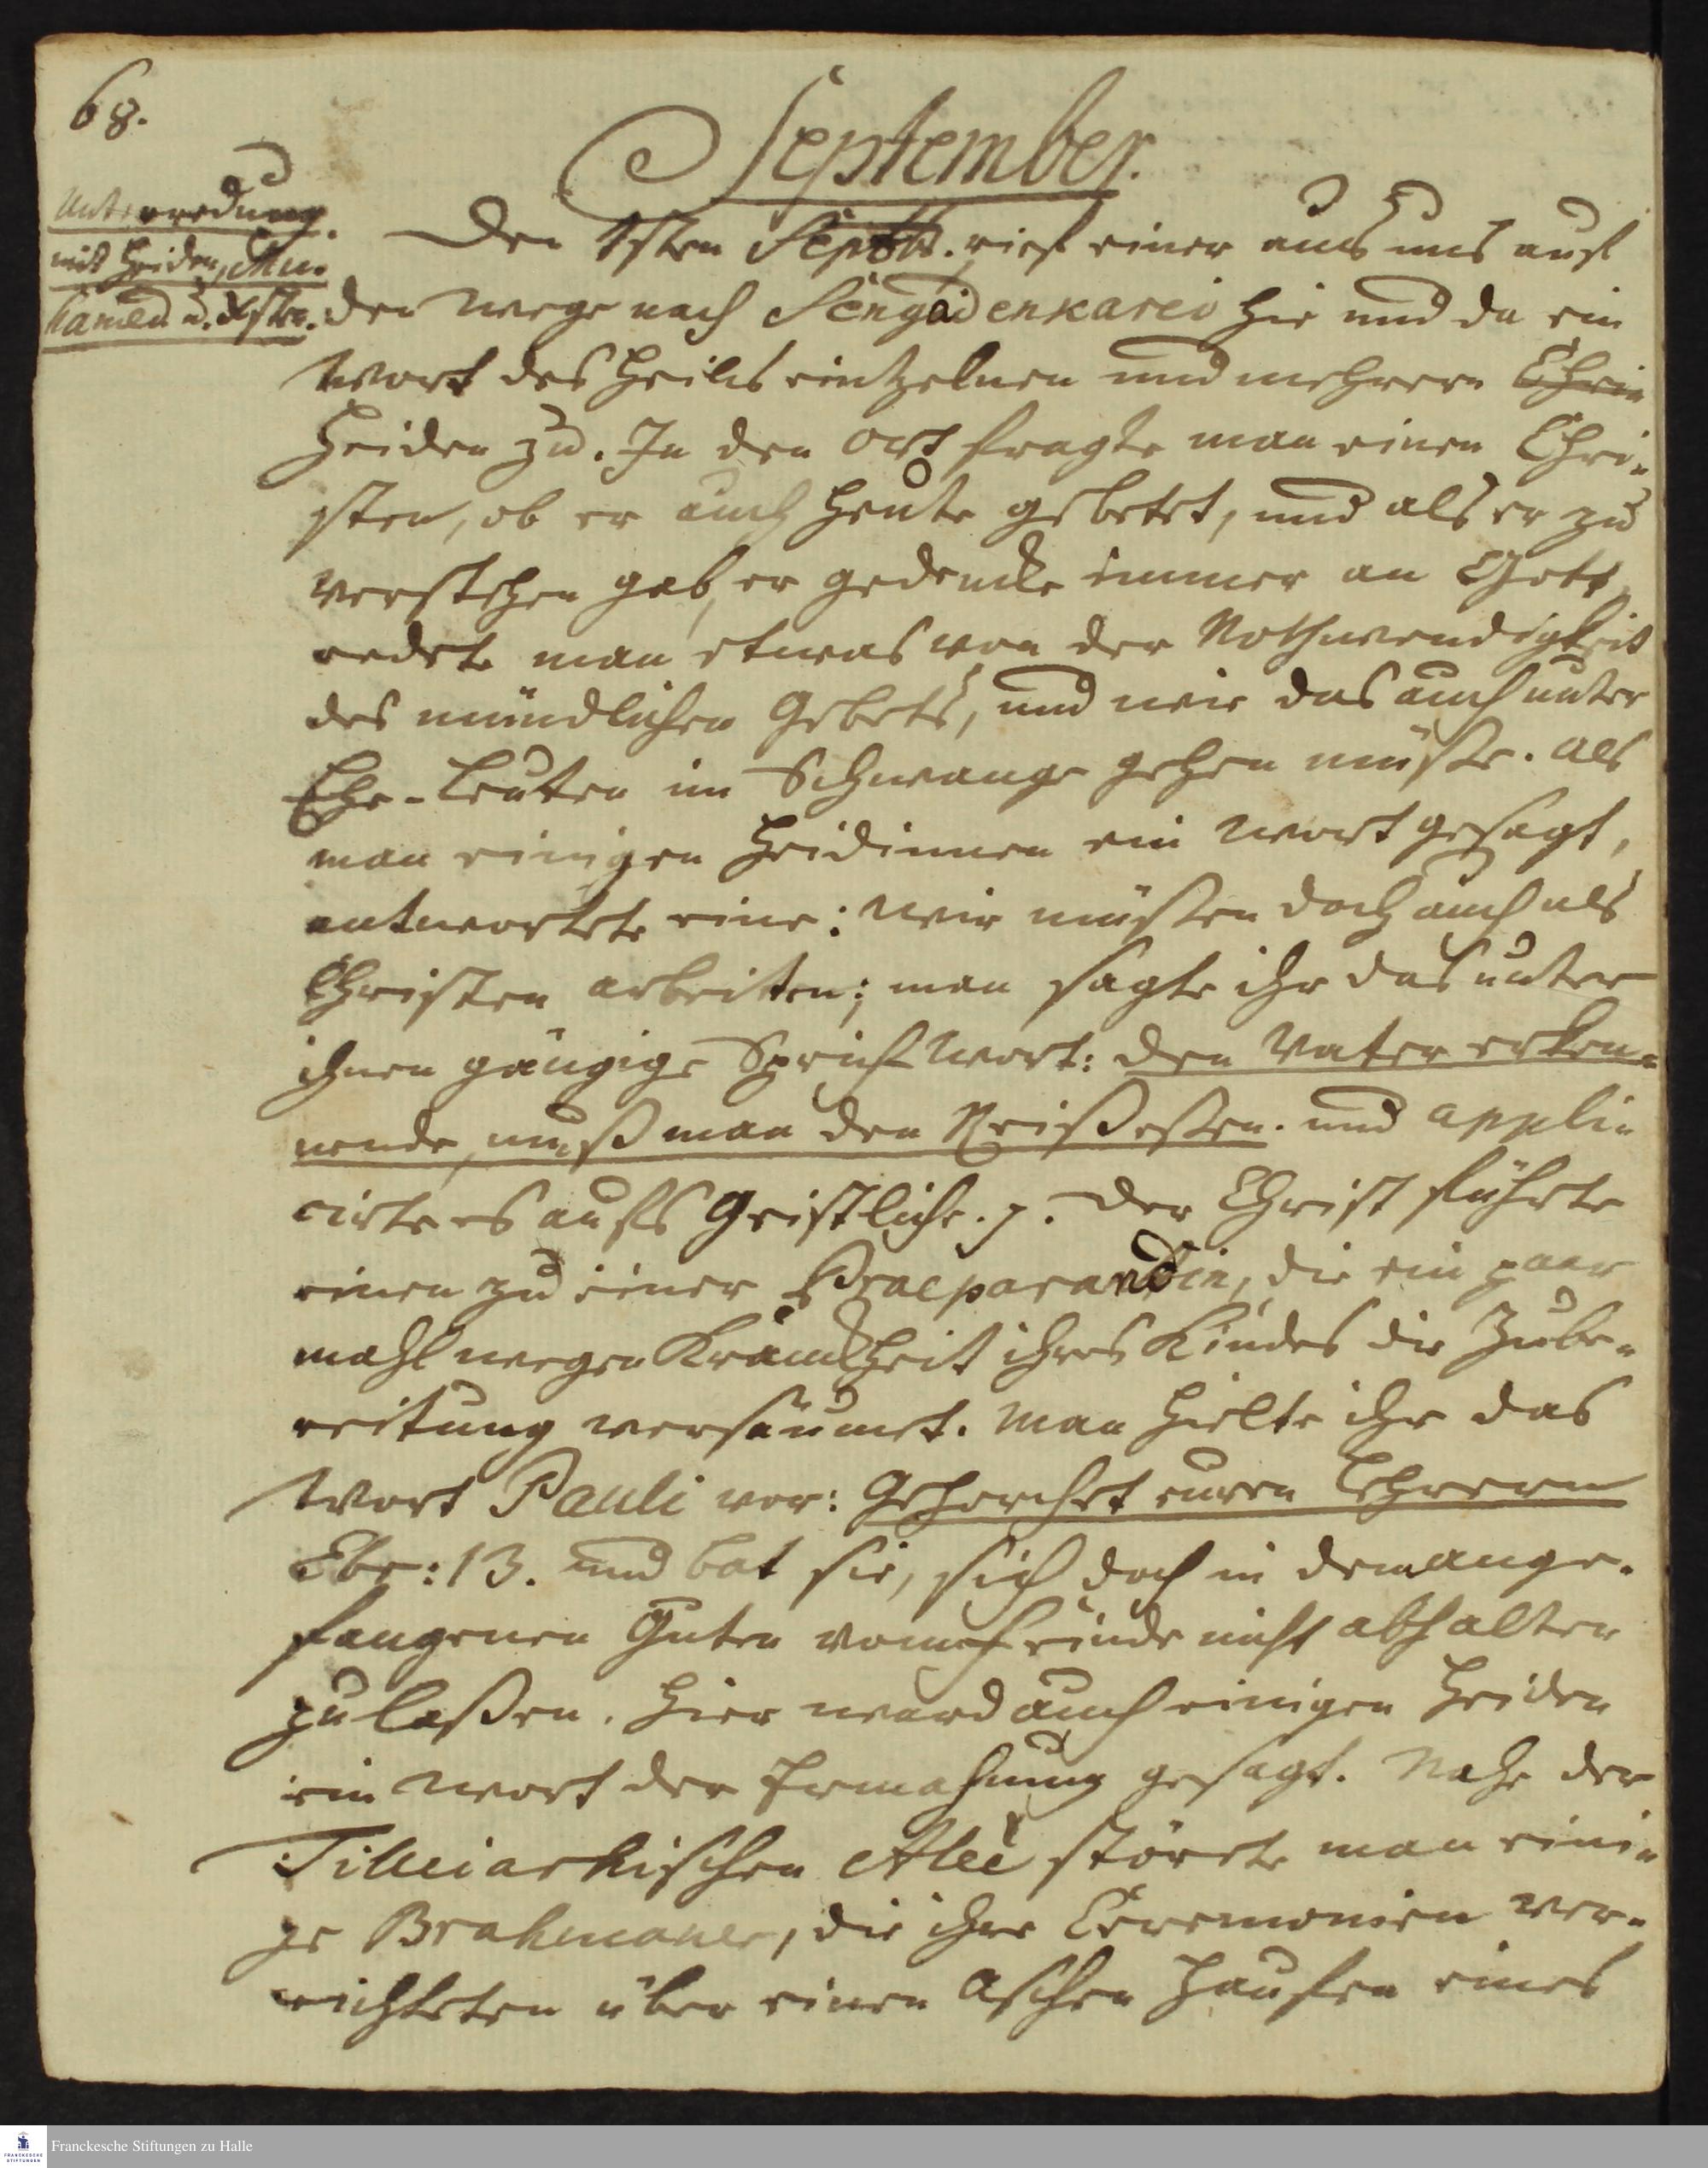 68.
September.
Unterredung
mit Heiden, Mu-
hamed. u. Xsten.
Den 1sten Septbr. rief einer aus uns auf
den Wege nach Sengidenkarei hie und da ein
Wort des Heils eintzelnen und mehrern Chri-
Heiden zu. In den Ort fragte man einen Chri-
sten, ob er auch heute gebetet, und als er zu
verstehen gab, er gedencke immer an Gott,
redete man etwas von der Nothwendigkeit
des mündlichen Gebets, und wie das auch unter
Ehe-Leuten im Schwange gehen müsse. Als
man einigen Heidinnen ein Wort gesagt,
antwortete eine: Wir müssen doch auch als
Christen arbeiten; man sagte ihr das unter
ihnen gängige Sprichwort: den Vater erken-
nende, muß man den Reiß essen. und appli-
cirte es aufs Geistliche. p. Der Christ führte
einen zu einer Praeparandin, die ein paar
mahl wegen Kranckheit ihres Kindes die Zube-
reitung versäumet. Man hielte ihr das
Wort Pauli vor: Gehorchet euren Lehrern
Ebr: 13. und bat sie, sich doch in dem ange-
fangenen Guten vom Feinde nicht abhalten
zu laßen. Hier ward auch einigen Heiden
ein Wort der Ermahnung gesagt. Nahe der
Tilleiarhischen Aleé störete man eini-
ge Brahmaner, die ihre Ceremonien ver-
richteten über einen Aschen Haufen eines
Franckesche Stiftungen zu Halle